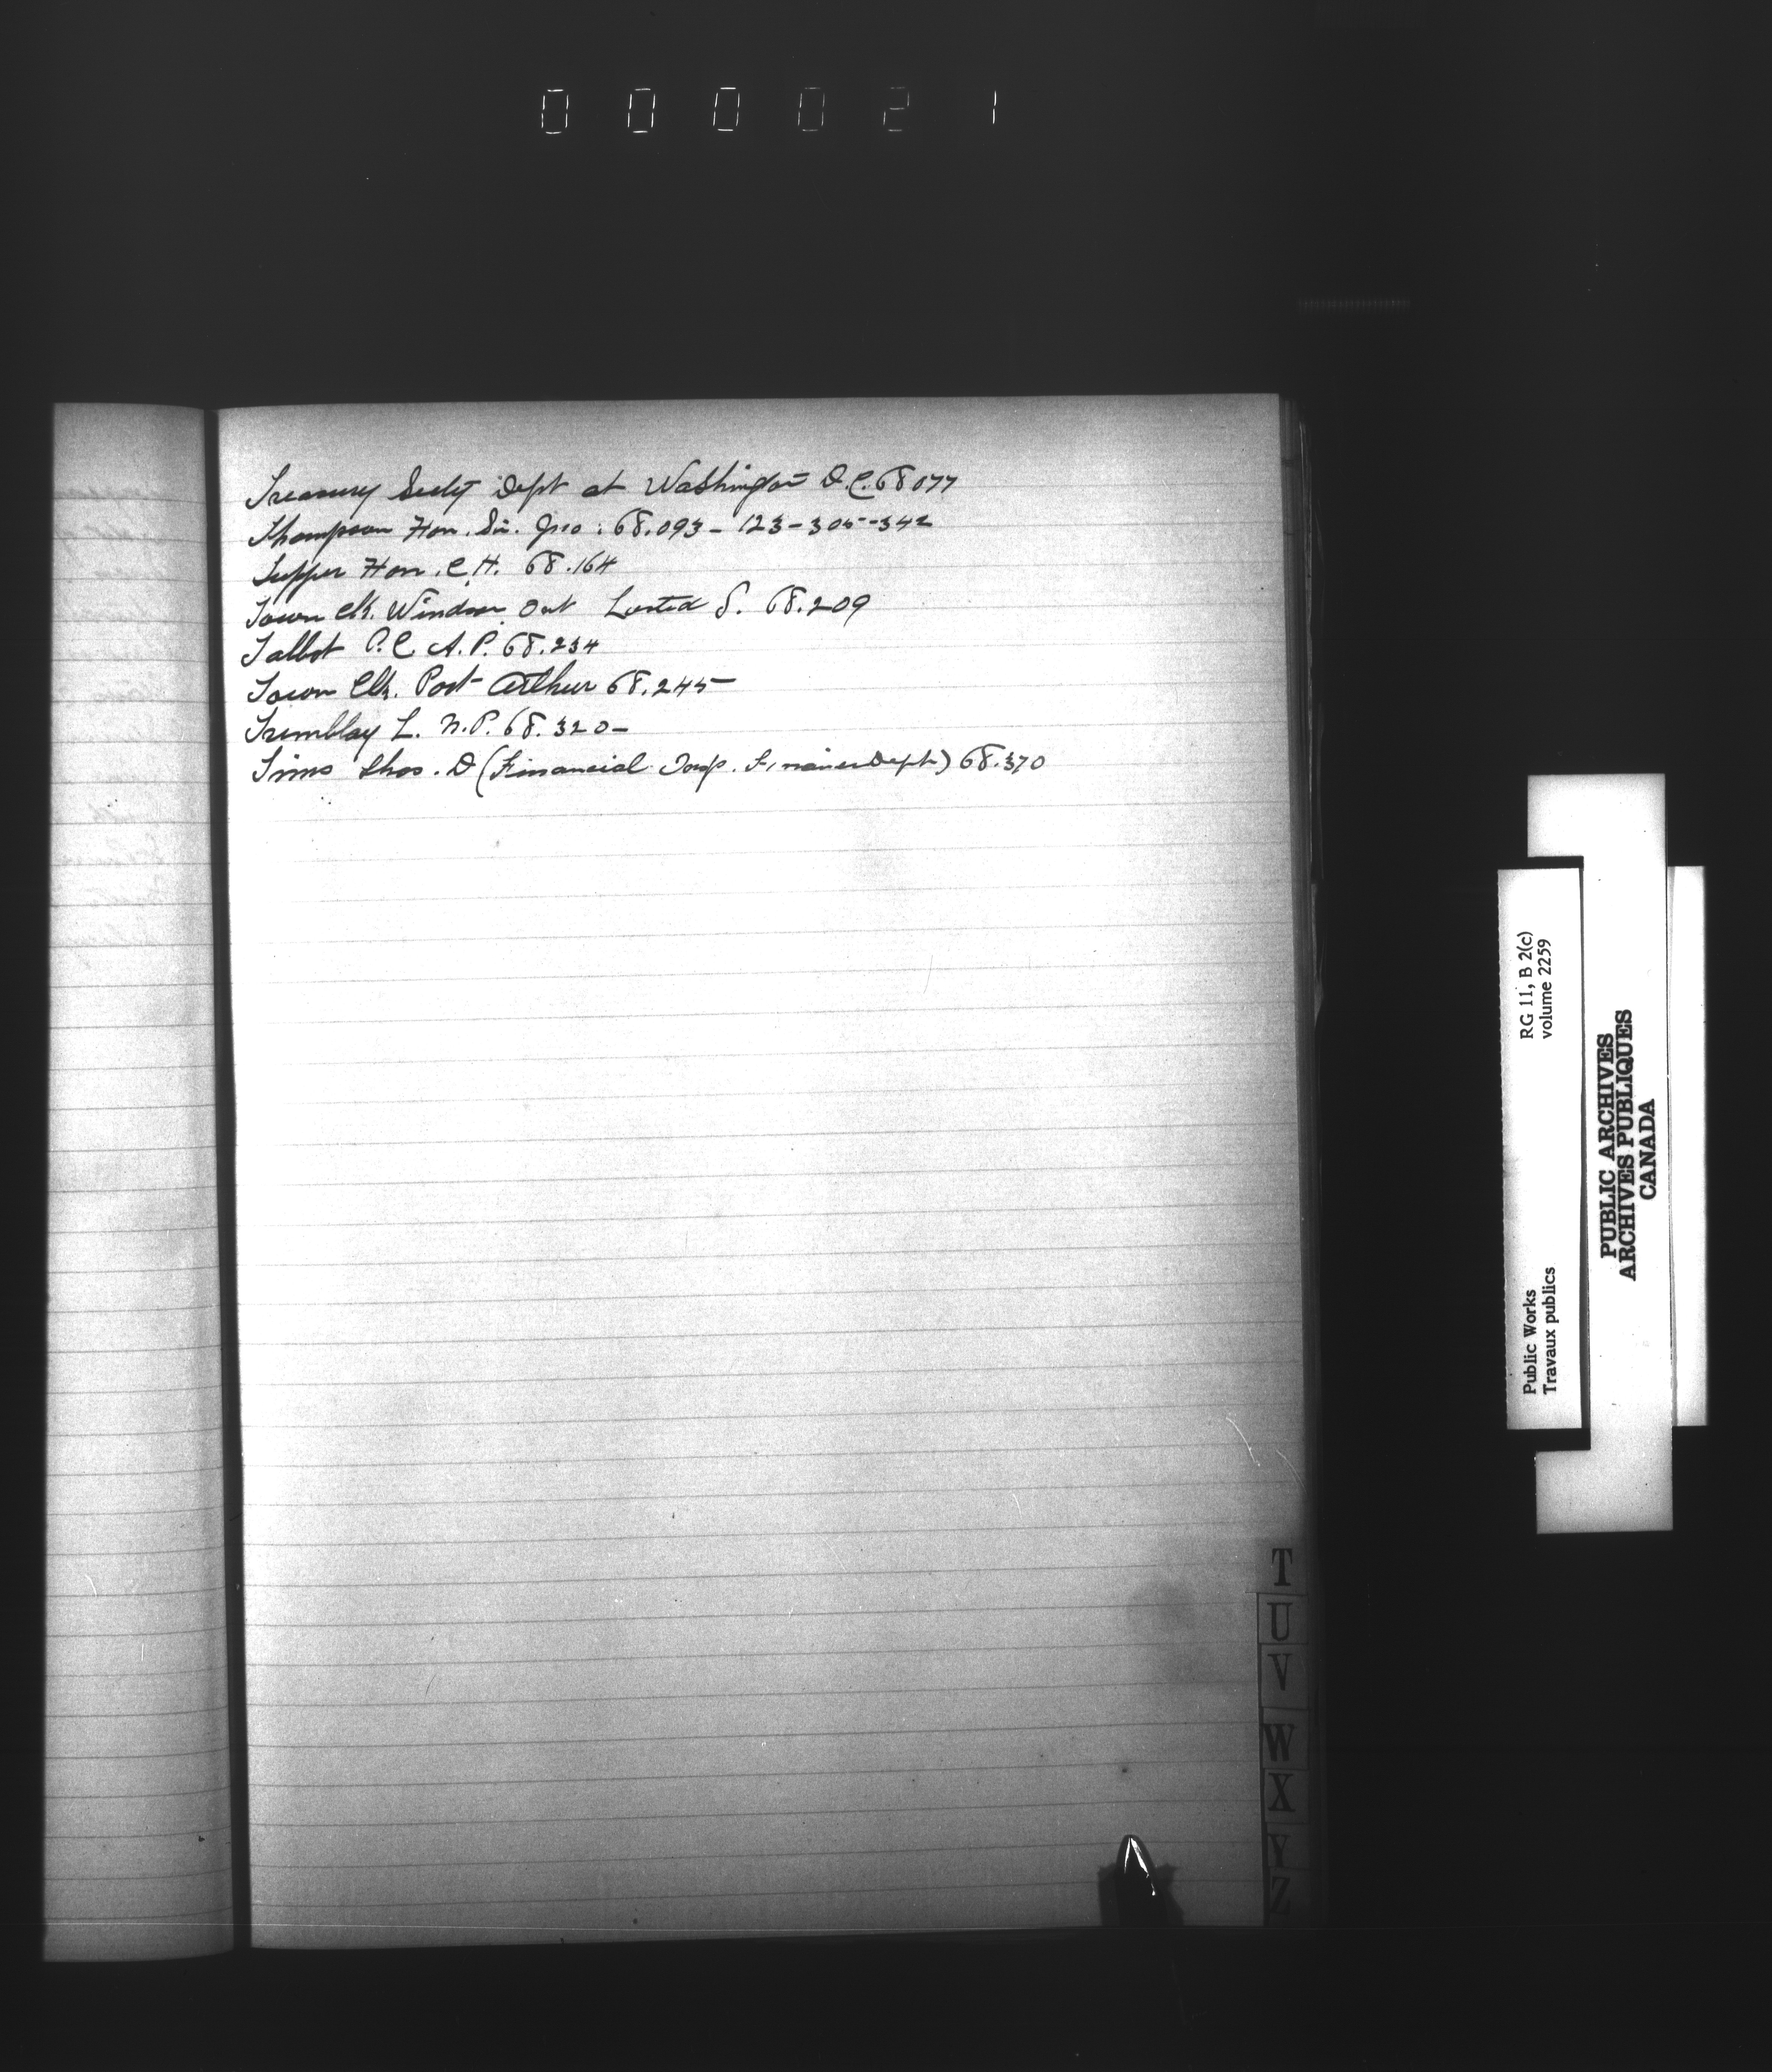 000021
Treasury Secty Dept at Washington D.C. 68077
Thompson Hon. Sir. Jno: 68.093 - 123 - 305 - 342
Tupper Hon. C.H. 68.164
Town Clk. Windsor Ont S. 68.209
Talbot P.C A.P. 68.234
Town Clk. Port Arthur 68.245-
Tremblay L. N.P. 68.320-
Tims Thos. D (Financial Insp. Finance Dept) 68.370
T
U
V
W
X
Y
Z
RG 11, B 2(c)
volume 2259
Public Works
Travaux publics
PUBLIC ARCHIVES
ARCHIVES PUBLIQUES
CANADA